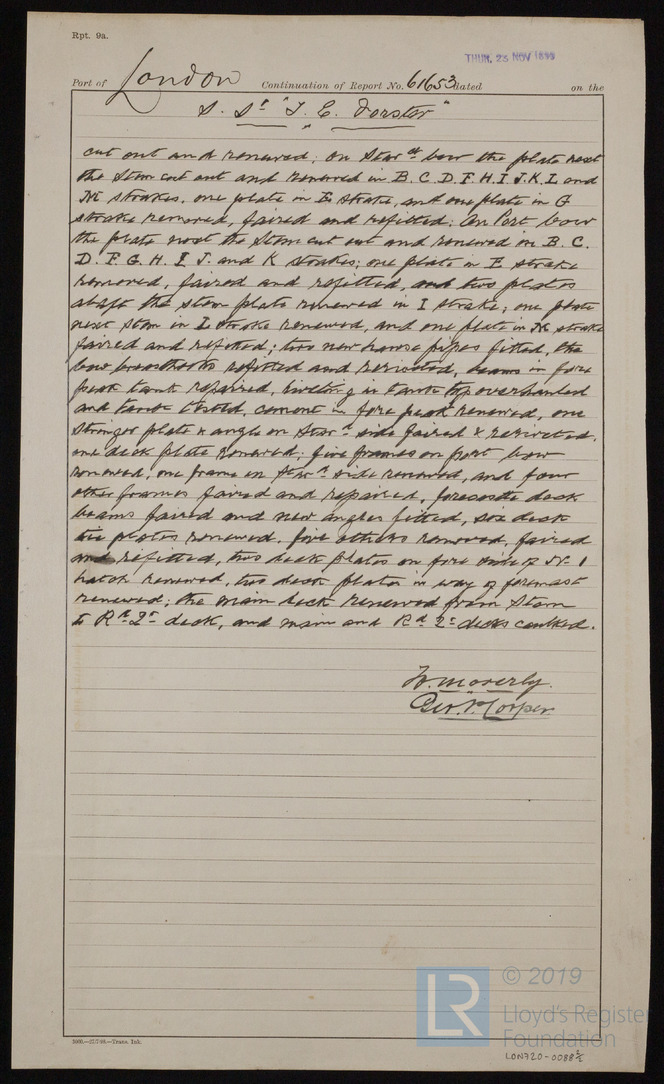 Rpt. 9a.
THUR. 23 NOV 1899
Port of London Continuation of Report No. 61653 dated on the
S. Sr "T. E. Forster"
cut out and renewed; on Starbd bow the plate next
the Stem cut out and renewed in B. C. D. F. H. I J. K. L and
M strakes. one plate in E strake, and one plate in G
strake removed, faired and refitted. On Port bow
the plate next the Stem cut out and renewed in B. C.
D. F. G. H. I J. and K strakes; one plate in E strake
removed, faired and refitted, and two plates
abaft the stem plate renewed in I strake; one plate
next Stem in L strake renewed, and one plate in M strake
faired and refitted; two new hawse pipes fitted, the
bow breasthooks refitted and reriveted, beams in fore
peak tank repaired, riveting in tank top overhauled
and tank tested, cement in fore peak renewed, one
Stringer plate & angle on Starbd side faired & reriveted.
one deck plate renewed; five frames on port bow
renewed, one frame on Starbd side renewed, and four
other frames faired and repaired, forecastle deck
beams faired and new angles fitted, six deck
tie plates renewed. five others removed, faired
and refitted, two deck plates on fore side of No 1
hatch renewed, two deck plates in way of foremast
renewed; the main deck renewed from Stem
to Rd Qr deck, and main and Rd Qr decks caulked.
W. Moverly.
Geo. Corper
2000.—27/7/99.—Trans. Ink.
LR
© 2019
Lloyd's Register
Foundation
LON720-0088